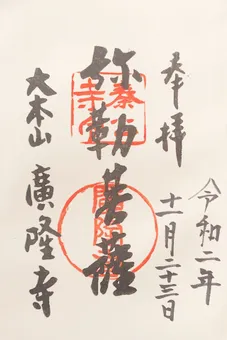 奉拝
令和二年
十一月二十三日
弥勒菩薩
大本山
廣隆寺